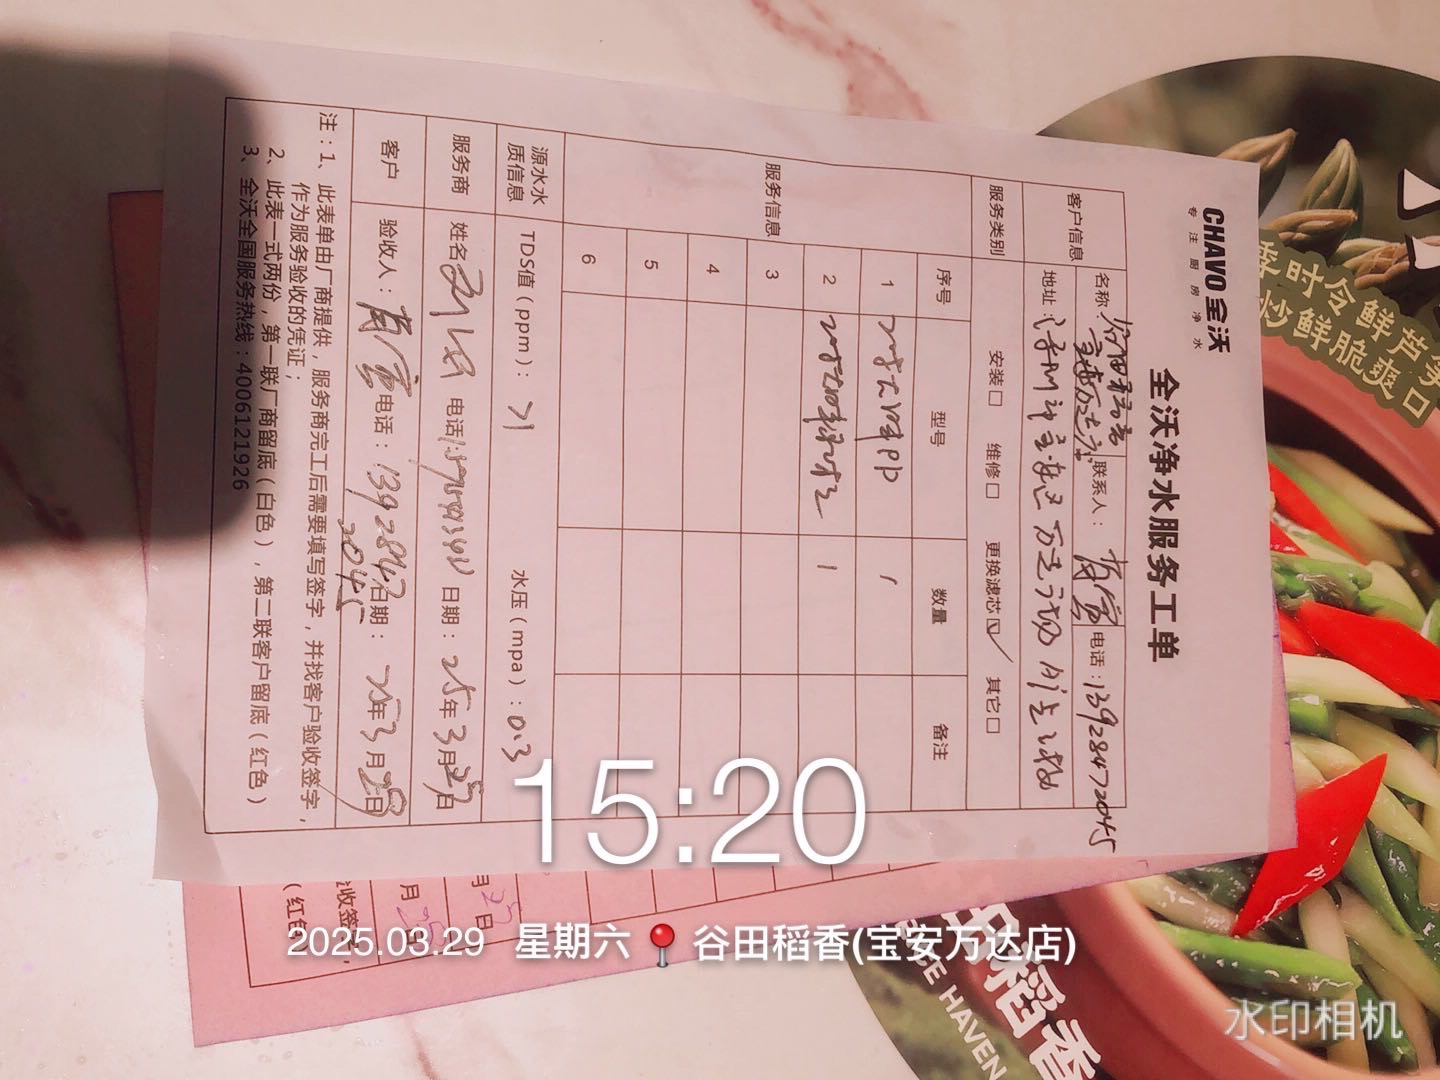 CHAVO 全沃
专注厨房净水
全沃净水服务工单
客户信息
名称：谷田稻香
宝安万达店
联系人：
电话：13928472045
地址：深圳市宝安区万达广场
服务类别
安装□ 维修□ 更换滤芯☑ 其它□
服务信息
序号 型号 数量 备注
1 1
2 1
3
4
5
6
源水水质信息
TDS值（ppm）：71
水压（mpa）：0.3
服务商
姓名
电话
日期：25年3月29日
客户
验收人：
电话：13928472045
日期：25年3月29日
注：1、此表单由厂商提供，服务商完工后需要填写签字，并找客户验收签字，
作为服务验收的凭证；
2、此表一式两份，第一联厂商留底（白色），第二联客户留底（红色）
3、全沃全国服务热线：4006121926
月
日
收签字，
（红色
时令鲜芦笋
炒鲜脆爽口
田稻香
RICE HAVEN
15:20
2025.03.29 星期六 谷田稻香(宝安万达店)
水印相机